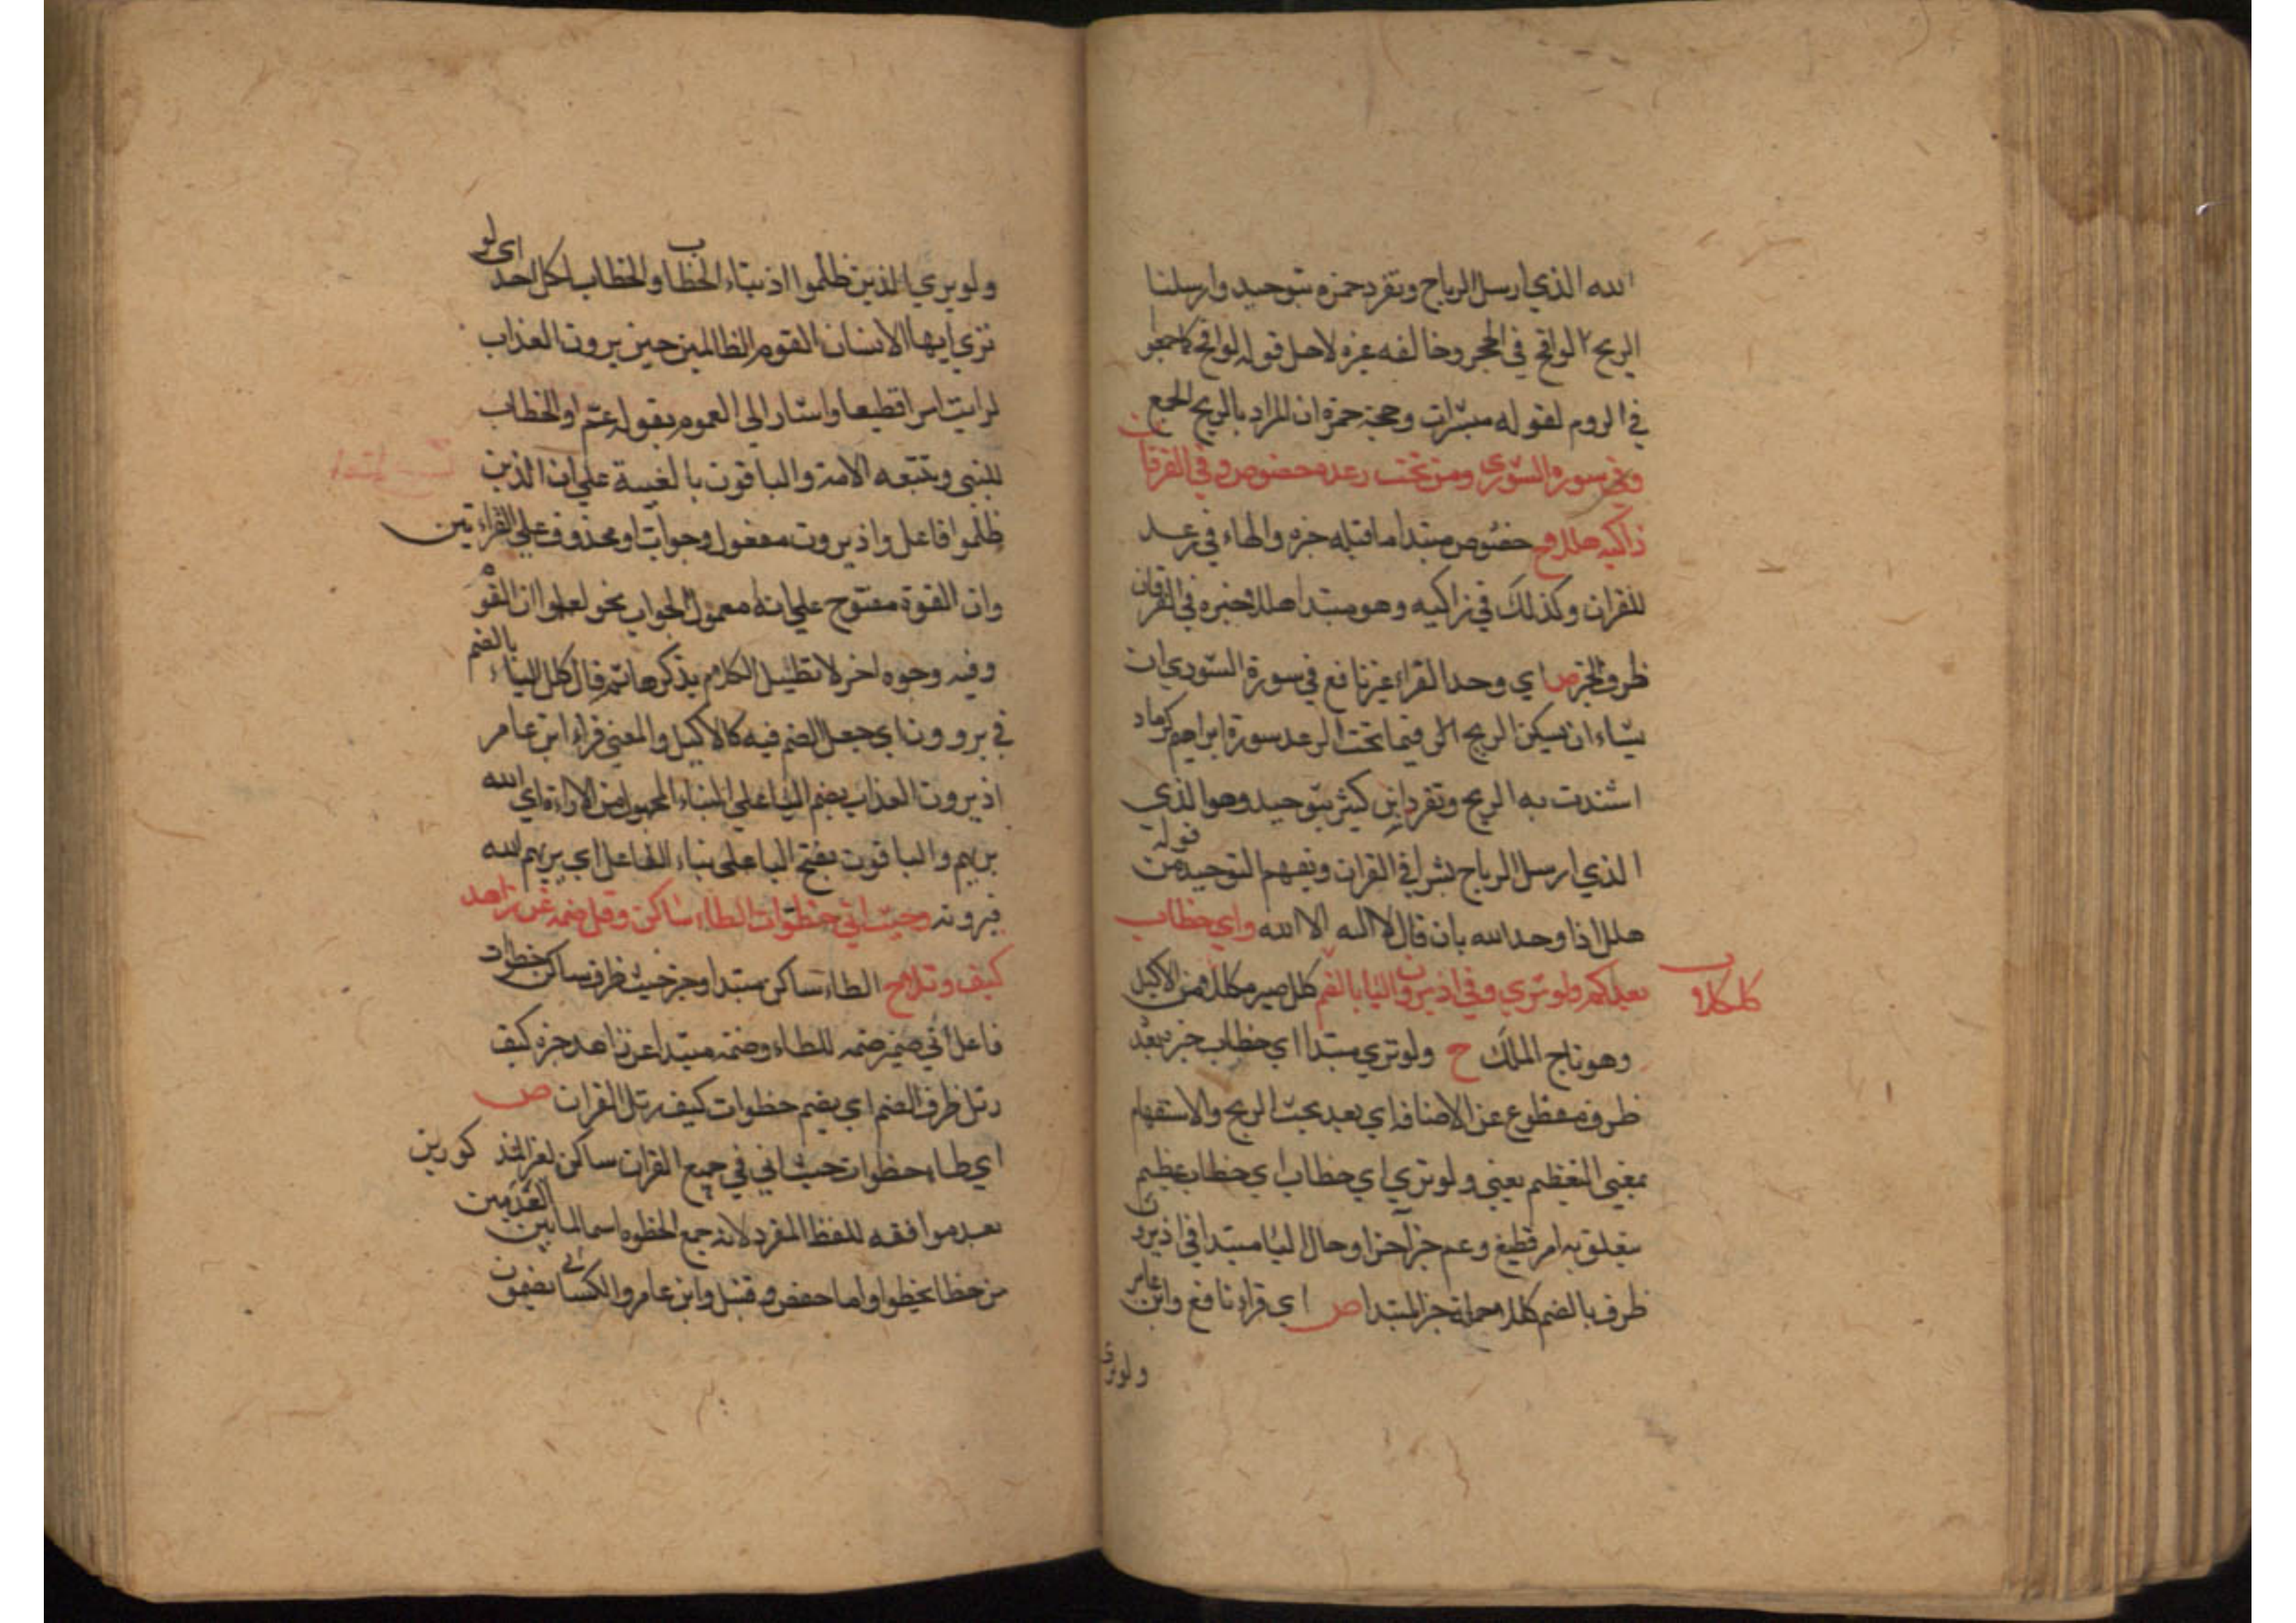 الله الذي ارسل الرياح وتفرد حمزه بتوحيد وارسلنا
الريح لواقح في الحجر وخالفه غيره لاجل قوله لواقح
في الروم لقوله مبشرات وحجة حمزة ان المراد بالريح الجمع
وفي سورة الشوري ومن تحت رعده خصوص وفي الفرقان
زاكيه هللا ح خصوص مبتدا ما قبله خبره والهاء في رعده
للقران وكذلك في زاكيه وهو مبتدا هلل خبره في الفرقان
ظرف الخبر ص اي وحد القراء غير نافع في سورة الشوري ان
يشاء ان يسكن الريح وفيما تحت الرعد سورة ابراهيم كرماد
اشتدت به الريح وتفرد ابن كثير بتوحيد وهو الذي
الذي ارسل الرياح بشرا في القران ويفهم التوحيد من قوله
هلل اذا وحد الله بان قال لا اله الا الله واي خطاب
بعد كم ولو تري وفي اذ يرون اليا بالضم كلل صير مكللا من الاكليل
كللا
وهو تاج الملك ح ولو تري مبتدا اي خطاب خبر بعد
ظرف مقطوع عن الاضافه اي بعد بحث الريح والاستفهام
بمعني التعظيم يعني ولو تري اي خطاب اي خطاب عظيم
يتعلق به امر فظيع وعم خبر اخر اوحال اليا مبتدا في اذ يرون
ظرف بالضم كللا جملة خبر المبتدا ص اي قرا نافع وابن عامر
ولو تري
ولو يري الذين ظلموا اذ بتاء الخطاب والخطاب لكل احد اي لو
تري ايها الانسان القوم الظالمين حين يرون العذاب
لرايت امرا فظيعا واشار الي العموم بقوله عم او الخطاب
للنبي وتتبعه الامة والباقون بالغيبة علي ان الذين
ظلموا فاعل واذ يرون مفعول وجواب لو محذوف علي القراءتين
وان القوة مفتوح علي انه معمول الجواب نحو لعلموا ان القوة
وفيه وجوه اخر لا تطيل الكلام بذكرها ثم قال كلل الياء بالضم
في يرون اي جعل الضم فيه كالاكليل والمعني قراء ابن عامر
اذ يرون العذاب بضم اليا علي البناء للمجهول من الاراءة اي الله
يريهم والباقون بفتح اليا علي بناء الفاعل اي يريهم الله
فيرونه وحيث اتي خطوات الطاء ساكن وقل ضمه عن زاهد
كيف رتلا ح الطاء ساكن مبتدا وخبر حيث ظرف ساكن خطوات
فاعل اتي ضمير ضمه للطاء وضمه مبتدا عن زاهد خبره كيف
رتل ظرف الضم اي يضم خطوات كيف رتل القران ص
اي طاء خطوات حيث اتي في جميع القران ساكن لغير المذكورين
بعد موافقه للفظ المفرد لانه جمع الخطوه اسم لما بين القدمين
من خطا يخطوا واما حفص وقنبل وابن عامر والكسائي يضمون